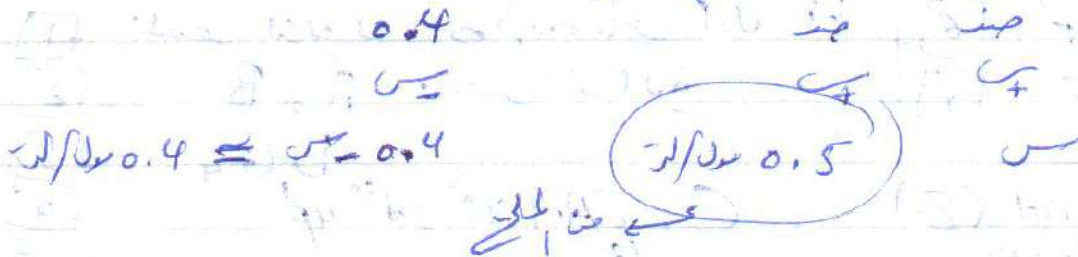 صفر صفر 0.4
+س +س -س
س 0.5 مول/لتر 0.4 - س ≈ 0.4 مول/لتر
من الملح